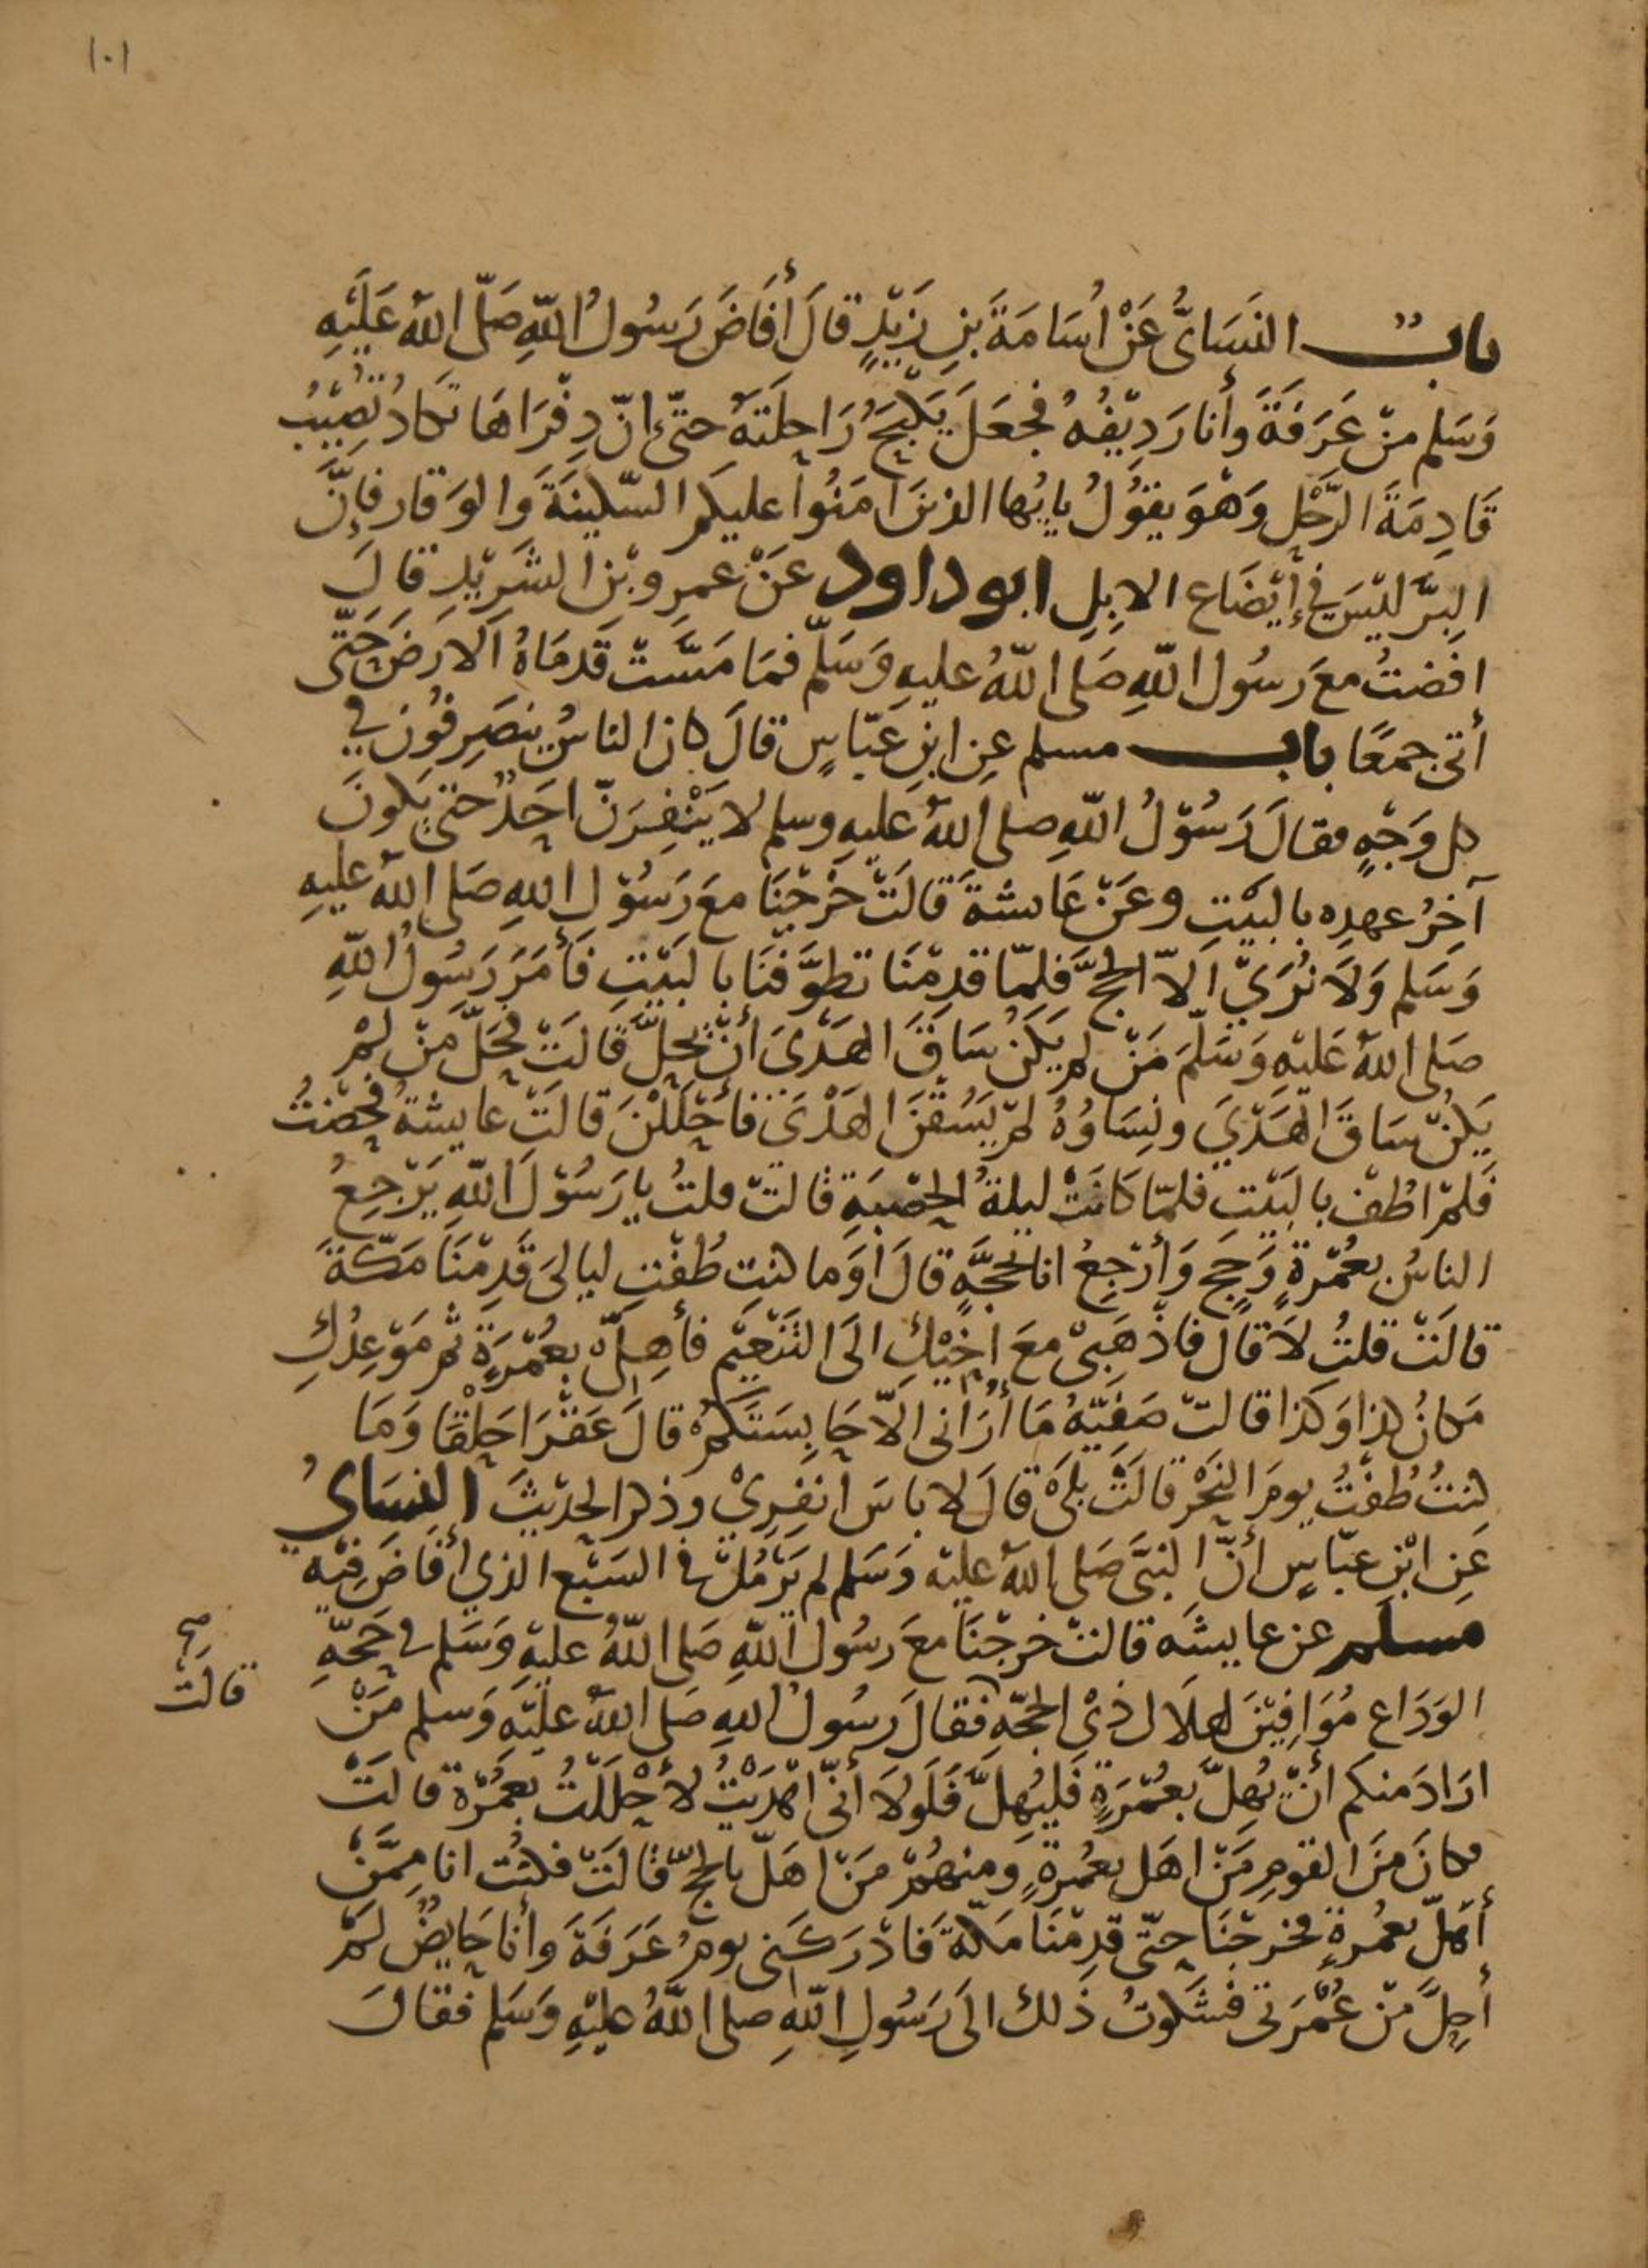 ١٠١
باب النسائى عن أسامة بن زيد قال أفاض رسول الله صلى الله عليه
وسلم من عرفة وأنا رديفه فجعل يكبح راحلته حتى إن دفراها تكاد تصيب
قادمة الرحل وهو يقول يايها الذين امنوا عليكم السكينة والوقار فإن
البر ليس في إيضاع الابل ابو داود عن عمرو بن الشريد قال
افضت مع رسول الله صلى الله عليه وسلم فما مست قدماه الارض حتى
أتى جمعا باب مسلم عن ابن عباس قال كان الناس ينصرفون في
كل وجه فقال رسول الله صلى الله عليه وسلم لا ينفرن احد حتى يكون
آخر عهده بالبيت وعن عائشة قالت خرجنا مع رسول الله صلى الله عليه
وسلم ولا نرى الا الحج فلما قدمنا تطوفنا بالبيت فأمر رسول الله
صلى الله عليه وسلم من لم يكن ساق الهدى أن يحل قالت فحل من لم
يكن ساق الهدي ونساؤه لم يسقن الهدى فأحللن قالت عايشة فحضت
فلم اطف بالبيت فلما كانت ليلة الحصبة قالت قلت يا رسول الله يرجع
الناس بعمرة وحج وأرجع انا بحجة قال أوما كنت طفت ليالى قدمنا مكة
قالت قلت لا قال فاذهبى مع اخيك الى التنعيم فأهلى بعمرة ثم موعدك
مكان كذا وكذا قالت صفيه ما أرانى الا حابستكم قال عقرا حلقا وما
كنت طفت يوم النحر قالت بلى قال لا باس انفري وذكر الحديث النساى
عن ابن عباس أن النبى صلى الله عليه وسلم لم يرمل في السبع الذي أفاض فيه
مسلم عن عايشه قالت خرجنا مع رسول الله صلى الله عليه وسلم في حجة
الوداع موافين لهلال ذي الحجة فقال رسول الله صلى الله عليه وسلم من
اراد منكم أن يهل بعمرة فليهل فلولا أنى اهديت لأحللت بعمرة قالت
فكان من القوم من اهل بعمرة ومنهم من اهل بالحج قالت فكنت انا ممن
أهل بعمرة فخرجنا حتى قدمنا مكة فادركنى يوم عرفة وأنا حايض لم
أحل من عمرتى فشكوت ذلك الى رسول الله صلى الله عليه وسلم فقال
صح
قالت